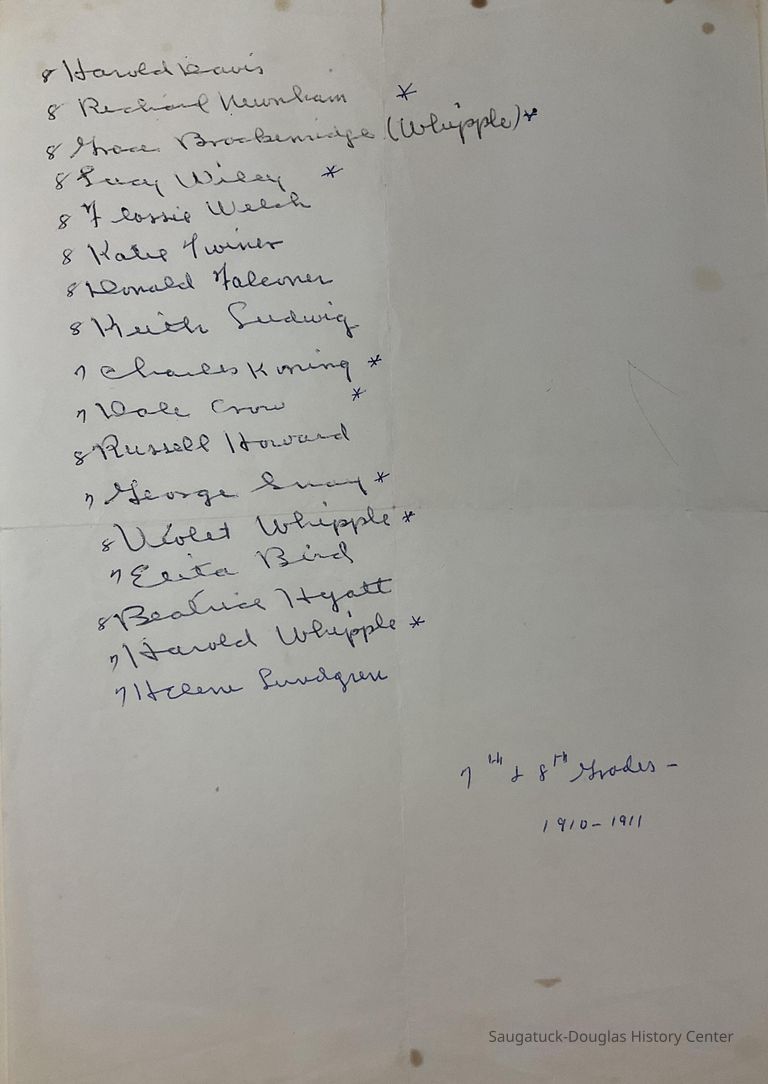 8 Harold Davis
8 Richard Newnham *
8 Grace Brockenridge (Whipple) *
8 Lucy Wiley *
8 Flossie Welch
8 Katie Twiner
8 Donald Falconer
8 Keith Ludwig
7 Charles Koning *
7 Dale Crow *
8 Russell Howard
7 George *
8 Violet Whipple *
7 Elita Bird
8 Beatrice Hyatt
7 Harold Whipple *
7 Helene Lundgren
7th & 8th Grades -
1910-1911
Saugatuck-Douglas History Center